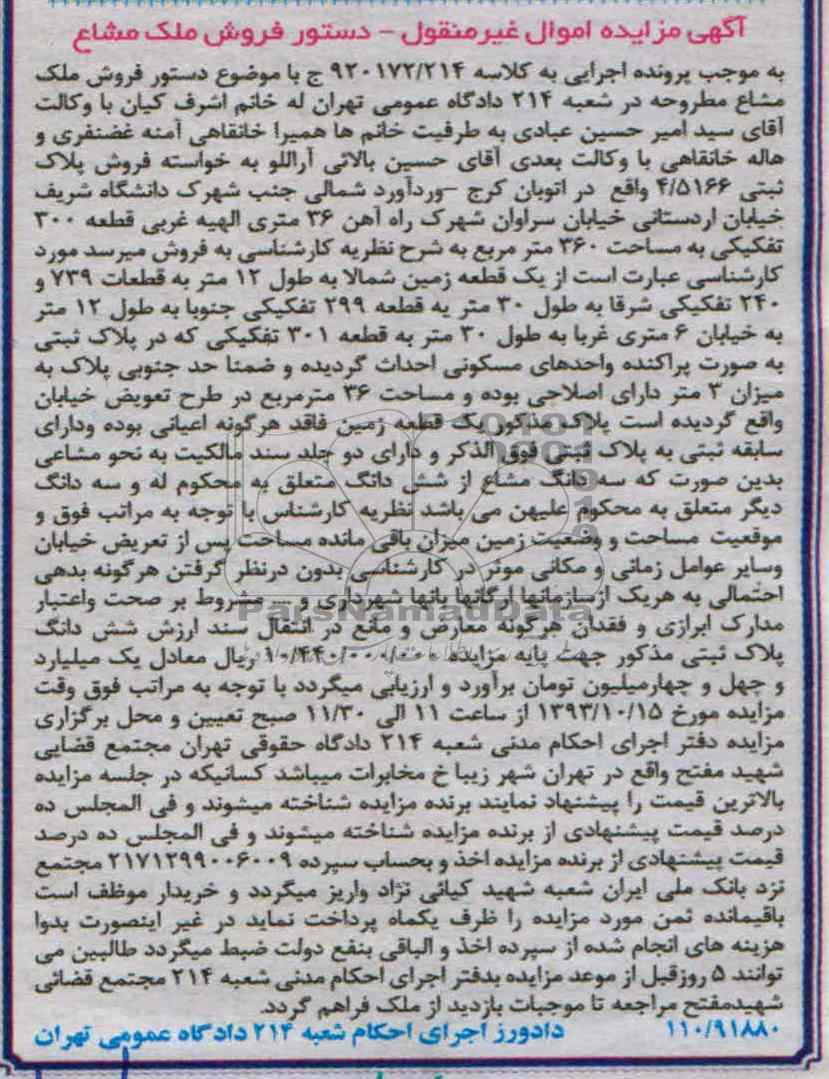 آگهی مزایده اموال غیرمنقول - دستور فروش ملک مشاع
به موجب پرونده اجرایی به کلاسه ۹۲۰۱۷۲/۲۱۴ ج با موضوع دستور فروش ملک
مشاع مطروحه در شعبه ۲۱۴ دادگاه عمومی تهران له خانم اشرف کیان با وکالت
آقای سید امیر حسین عبادی به طرفیت خانم ها همیرا خانقاهی آمنه غضنفری و
هاله خانقاهی با وکالت بعدی آقای حسین بالائی آراللو به خواسته فروش پلاک
ثبتی ۴/۵۱۶۶ واقع در اتوبان کرج -وردآورد شمالی جنب شهرک دانشگاه شریف
خیابان اردستانی خیابان سراوان شهرک راه آهن ۳۶ متری الهیه غربی قطعه ۳۰۰
تفکیکی به مساحت ۳۶۰ متر مربع به شرح نظریه کارشناسی به فروش میرسد مورد
کارشناسی عبارت است از یک قطعه زمین شمالا به طول ۱۲ متر به قطعات ۷۳۹ و
۲۴۰ تفکیکی شرقا به طول ۳۰ متر یه قطعه ۲۹۹ تفکیکی جنوبا به طول ۱۲ متر
به خیابان ۶ متری غربا به طول ۳۰ متر به قطعه ۳۰۱ تفکیکی که در پلاک ثبتی
به صورت پراکنده واحدهای مسکونی احداث گردیده و ضمنا حد جنوبی پلاک به
میزان ۳ متر دارای اصلاحی بوده و مساحت ۳۶ مترمربع در طرح تعویض خیابان
واقع گردیده است پلاک مذکور یک قطعه زمین فاقد هرگونه اعیانی بوده ودارای
سابقه ثبتی به پلاک ثبتی فوق الذکر و دارای دو جلد سند مالکیت به نحو مشاعی
بدین صورت که سه دانگ مشاع از شش دانگ متعلق به محکوم له و سه دانگ
دیگر متعلق به محکوم علیهن می باشد نظریه کارشناس با توجه به مراتب فوق و
موقعیت مساحت و وضعیت زمین میزان باقی مانده مساحت پس از تعریض خیابان
وسایر عوامل زمانی و مکانی موثر در کارشناسی بدون درنظر گرفتن هرگونه بدهی
احتمالی به هریک ازسازمانها ارگانها بانها شهرداری و ... مشروط بر صحت واعتبار
ParsNamadData
مدارک ابرازی و فقدان هرگونه معارض و مانع در انتقال سند ارزش شش دانگ
پلاک ثبتی مذکور جهت پایه مزایده ۱۰/۴۴۰/۰۰۰/۰۰۰ ریال معادل یک میلیارد
و چهل و چهارمیلیون تومان برآورد و ارزیابی میگردد با توجه به مراتب فوق وقت
مزایده مورخ ۱۳۹۳/۱۰/۱۵ از ساعت ۱۱ الی ۱۱/۳۰ صبح تعیین و محل برگزاری
مزایده دفتر اجرای احکام مدنی شعبه ۲۱۴ دادگاه حقوقی تهران مجتمع قضایی
شهید مفتح واقع در تهران شهر زیبا خ مخابرات میباشد کسانیکه در جلسه مزایده
بالاترین قیمت را پیشنهاد نمایند برنده مزایده شناخته میشوند و فی المجلس ده
درصد قیمت پیشنهادی از برنده مزایده شناخته میشوند و فی المجلس ده درصد
قیمت پیشنهادی از برنده مزایده اخذ و بحساب سپرده ۲۱۷۱۲۹۹۰۰۶۰۰۹ مجتمع
نزد بانک ملی ایران شعبه شهید کیائی نژاد واریز میگردد و خریدار موظف است
باقیمانده ثمن مورد مزایده را ظرف یکماه پرداخت نماید در غیر اینصورت بدوا
هزینه های انجام شده از سپرده اخذ و الباقی بنفع دولت ضبط میگردد طالبین می
توانند ۵ روزقبل از موعد مزایده بدفتر اجرای احکام مدنی شعبه ۲۱۴ مجتمع قضائی
شهیدمفتح مراجعه تا موجبات بازدید از ملک فراهم گردد.
۱۱۰/۹۱۸۸۰ دادورز اجرای احکام شعبه ۲۱۴ دادگاه عمومی تهران